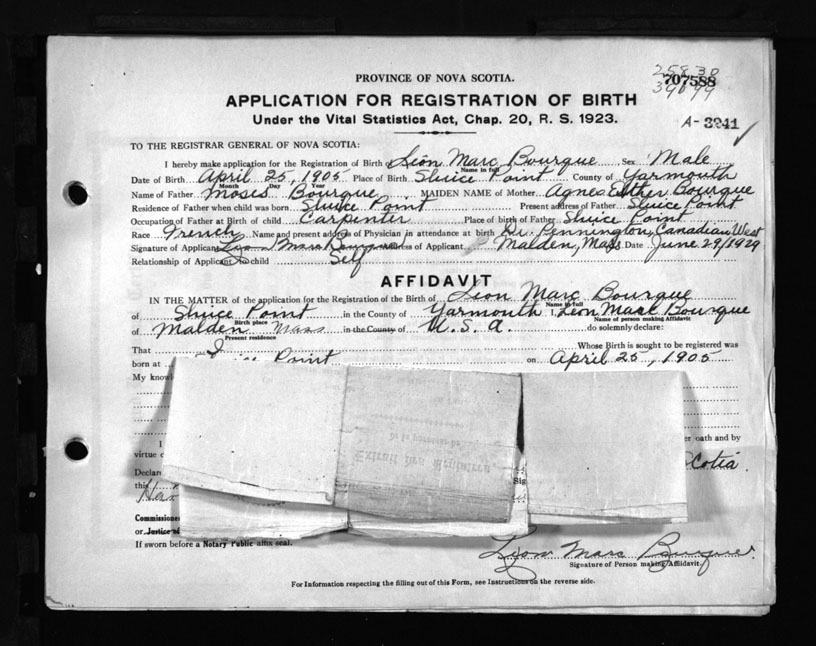 PROVINCE OF NOVA SCOTIA.
25830
707588
39099
APPLICATION FOR REGISTRATION OF BIRTH
Under the Vital Statistics Act, Chap. 20, R. S. 1923.
A-3941
TO THE REGISTRAR GENERAL OF NOVA SCOTIA:
I hereby make application for the Registration of Birth Léon Marc Bourque Sex Male
Name in full
Date of Birth April 25, 1905 Place of Birth Sluice Point County of Yarmouth
Month Day Year
Name of Father Moses Bourque MAIDEN NAME of Mother Agnes Esther Bourque
Residence of Father when child was born Sluice Point Present address of Father Sluice Point
Occupation of Father at Birth of child Carpenter Place of birth of Father Sluice Point
Race French Name and present address of Physician in attendance at birth Dr. Pennington, Canadian West
Signature of Applicant Address of Applicant Malden, Mass. Date June 29/1929
Relationship of Applicant to child Self
AFFIDAVIT
IN THE MATTER of the application for the Registration of the Birth of Léon Marc Bourque
Name in full
of Sluice Point in the County of Yarmouth I, Léon Marc Bourque
Birth place Name of person making Affidavit
of Malden Mass in the County of U.S.A. do solemnly declare:
Present residence
That I Whose Birth is sought to be registered was
born at Point on April 25, 1905
My
I er oath and by
virtue Scotia
Declar
this
Extrait des Registres
Sig
Commissione
or Justice of
If sworn before a Notary Public affix seal.
Léon Marc Bourque
Signature of Person making Affidavit.
For Information respecting the filling out of this Form, see Instructions on the reverse side.